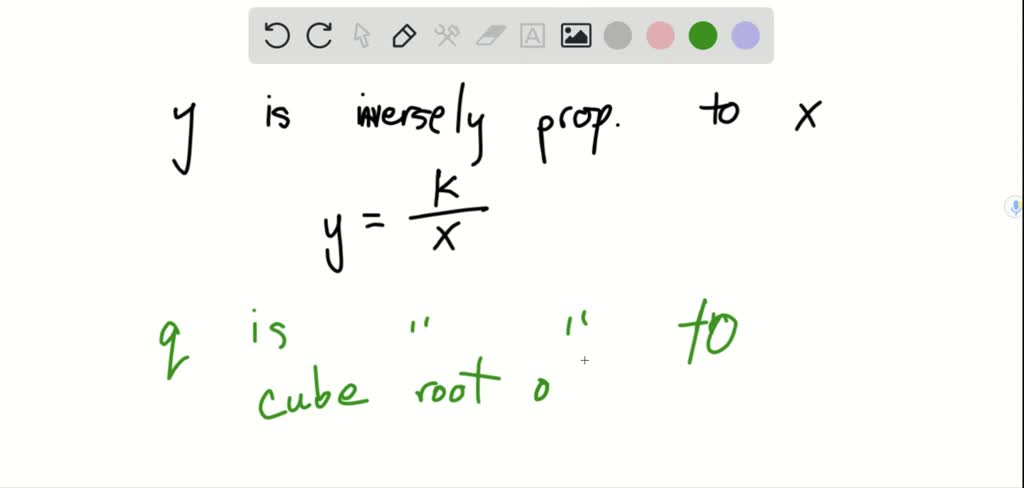 y is inversely prop. to x
y = K/x
q is " " to
cube root o